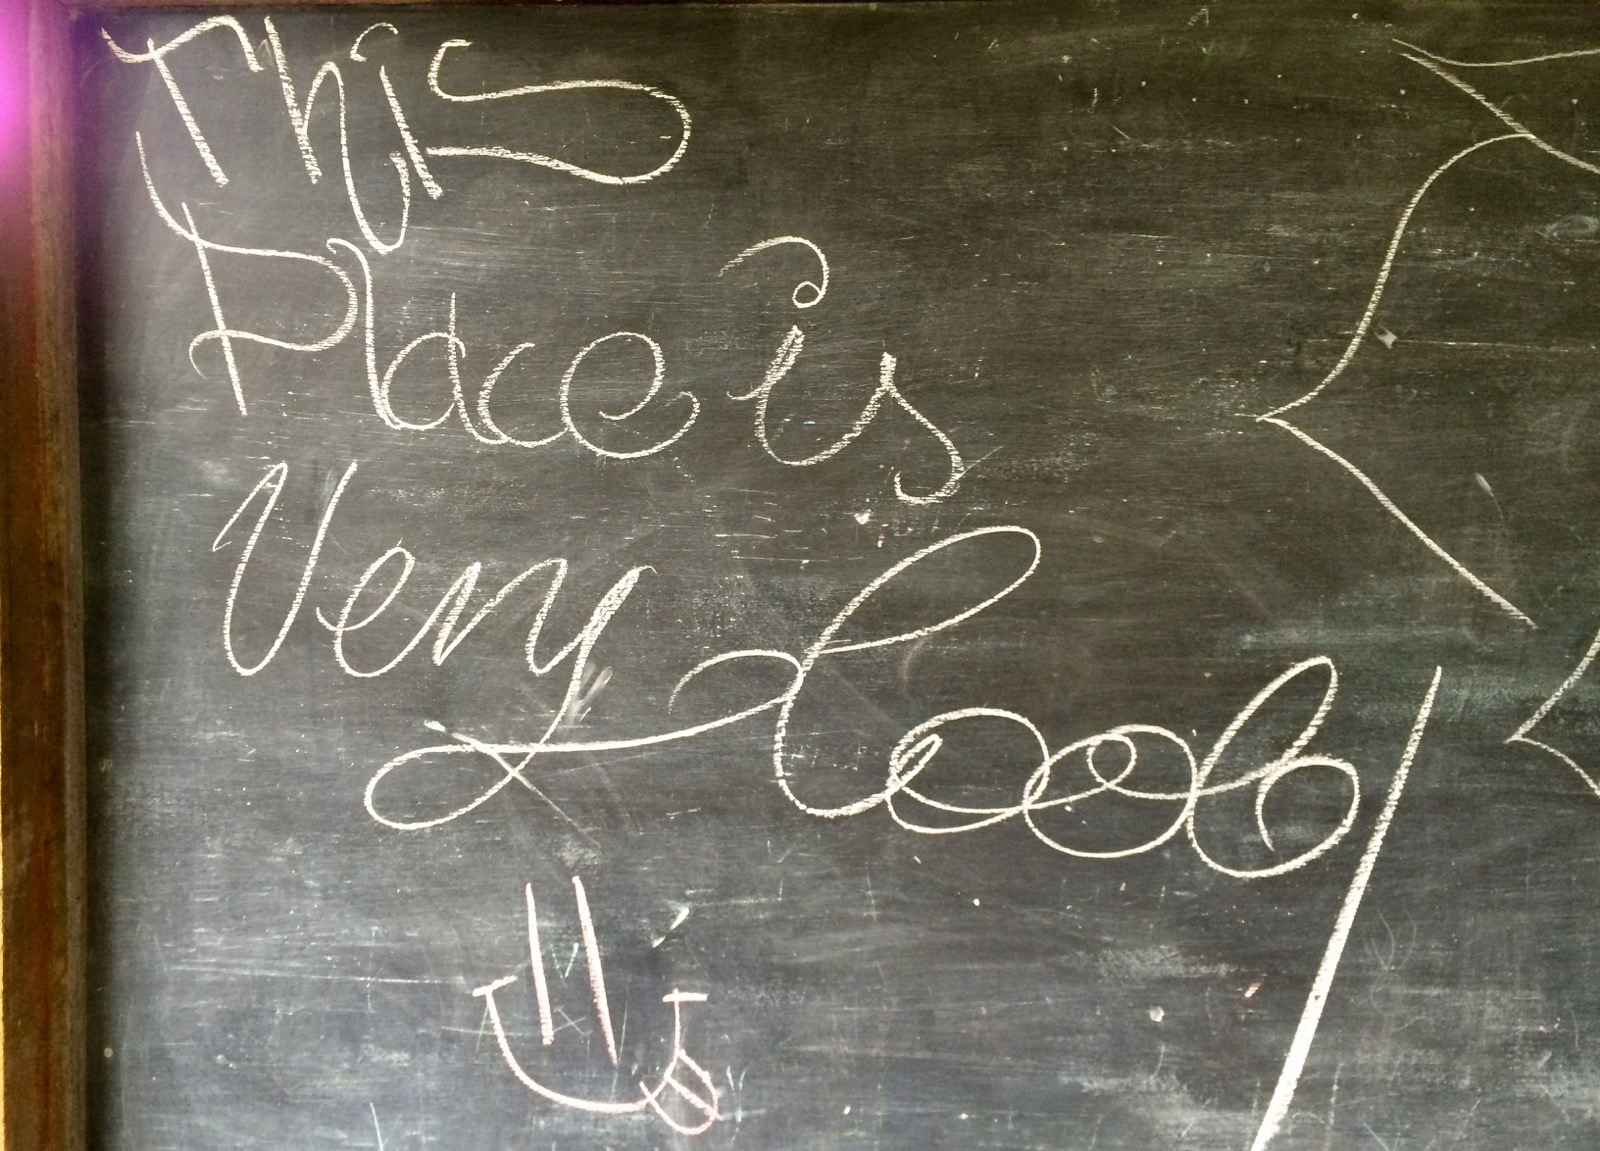 This
Place is
Very Cool